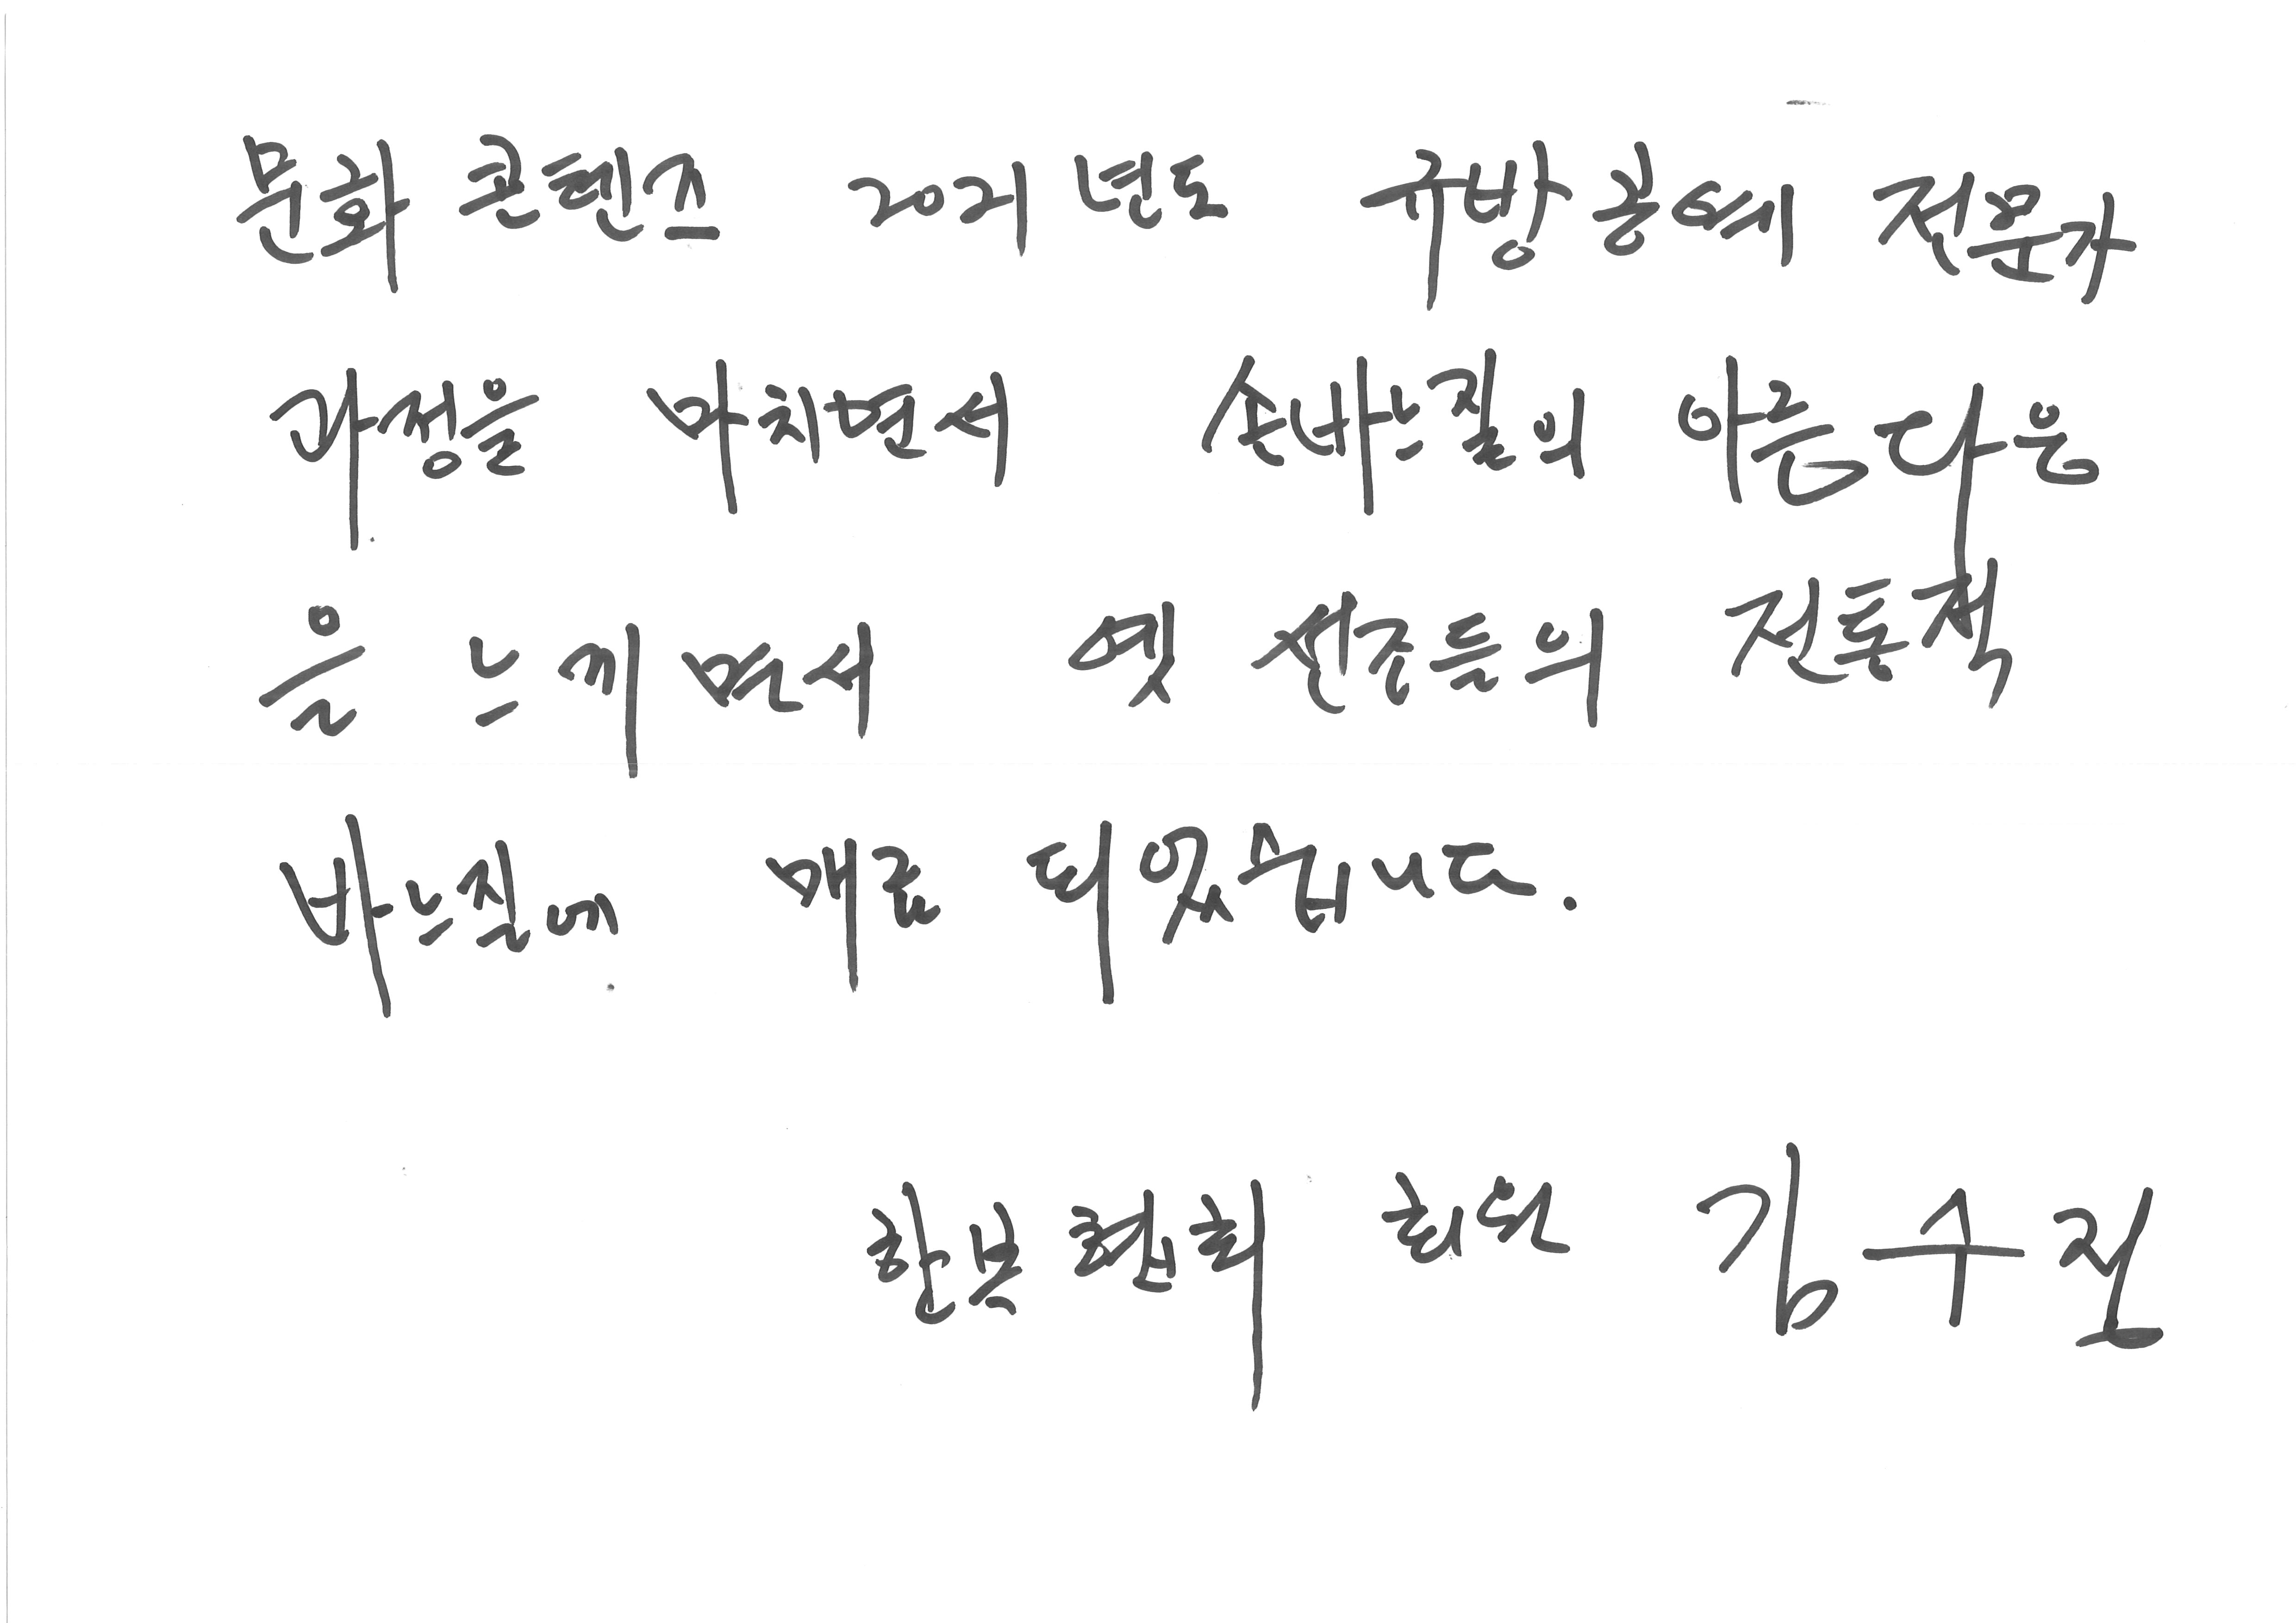 문화 콘텐츠 2021년도 규방공예 전문가
과정을 마치면서 손바느질의 아름다운
을 느끼면서 옛 선조들의 전통적
바느질에 매료 되었습니다.
한복 회원 김수진